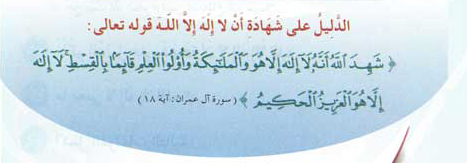 الدَّلِيلُ على شَهَادَةِ أَنْ لا إِلهَ إِلاَّ اللَّـهَ قوله تعالى:
﴿ شَهِدَ ٱللَّهُ أَنَّهُۥ لَآ إِلَٰهَ إِلَّا هُوَ وَٱلْمَلَٰٓئِكَةُ وَأُو۟لُوا۟ ٱلْعِلْمِ قَآئِمًۢا بِٱلْقِسْطِ ۚ لَآ إِلَٰهَ
إِلَّا هُوَ ٱلْعَزِيزُ ٱلْحَكِيمُ ﴾ (سورة آل عمران: آية ١٨)